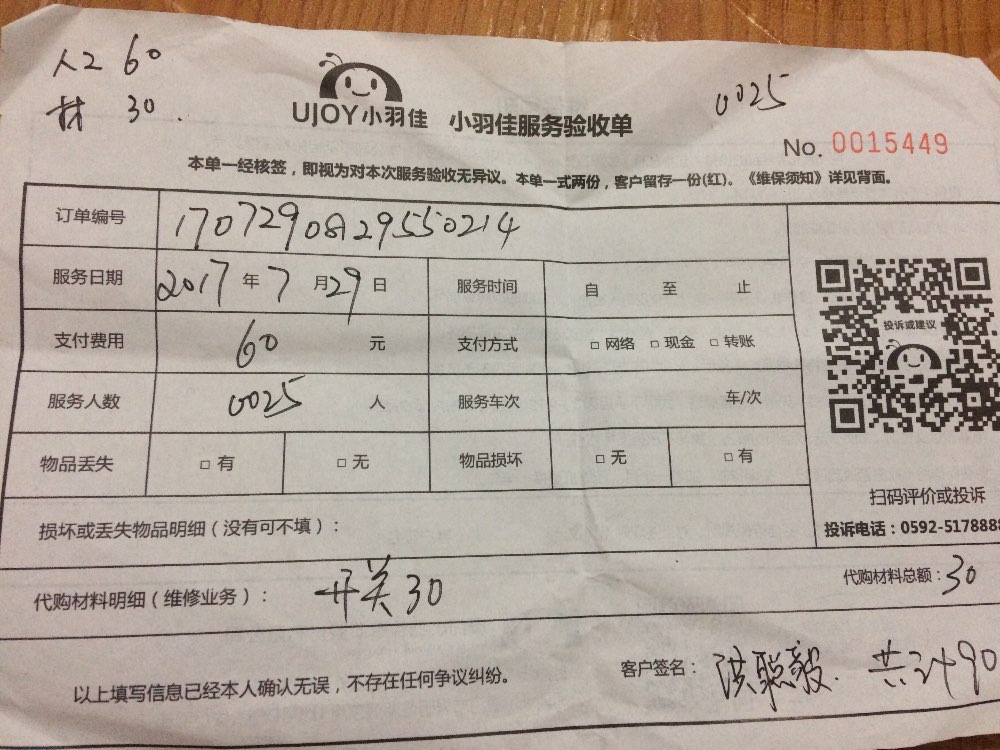 人工 60
材 30.
0025
UJOY小羽佳 小羽佳服务验收单
No. 0015449
本单一经核签，即视为对本次服务验收无异议。本单一式两份，客户留存一份(红)。《维保须知》详见背面。
订单编号 17072908129550214
服务日期 2017年7月29日 服务时间 自 至 止
支付费用 60 元 支付方式 □ 网络 □ 现金 □ 转账
投诉或建议
服务人数 0025 人 服务车次 车/次
物品丢失 □ 有 □ 无 物品损坏 □ 无 □ 有
扫码评价或投诉
损坏或丢失物品明细（没有可不填）：
投诉电话：0592-5178888
代购材料明细（维修业务）： 开关30 代购材料总额：30
以上填写信息已经本人确认无误，不存在任何争议纠纷。 客户签名：洪聪毅. 共计90